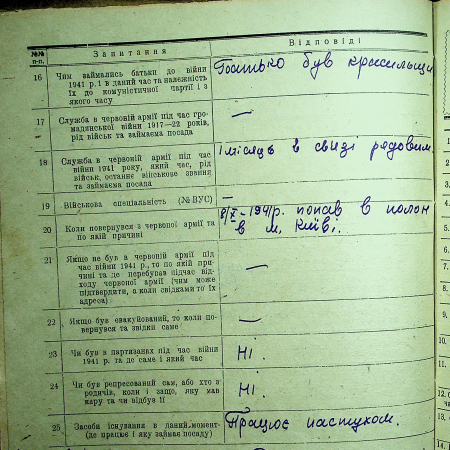 №№ п-п.
Запитання
Відповіді
16
Чим займались батьки до війни
1941 р. і в даний час та належність
їх до комуністичної партії і з
якого часу
Батько був красильщи
17
Служба в червоній армії під час гро-
мадянської війни 1917—22 років,
рід військ та займаєма посада
—
18
Служба в червоній армії під час
війни 1941 року, який час, рід
військ, останнє військове звання
та займаєма посада
1 місяць в связі рядовим
19
Військова спеціяльність (№ ВУС)
—
20
Коли повернувся з червоної армії та
по якій причині
8/X - 1941 р. попав в полон
в м. Київ.
21
Якщо не був в червоній армії під
час війни 1941 р., то по якій при-
чині та де перебував підчас від-
ходу червоної армії (чим може
підтвердити, а коли свідками то їх
адреса)
—
22
Якщо був евакуйований, то коли по-
вернувся та звідки саме
—
23
Чи був в партизанах під час війни
1941 р. та де саме і який час
Ні.
24
Чи був репресований сам, або хто з
родичів, коли і защо, яку мав
кару та чи відбув її
Ні.
25
Засоби існування в даний момент
(де працює і яку займає посаду)
Працює пастухом.
10.
11.
13.